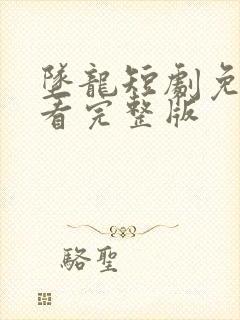 墜龍短劇免
看完整版
駱聖